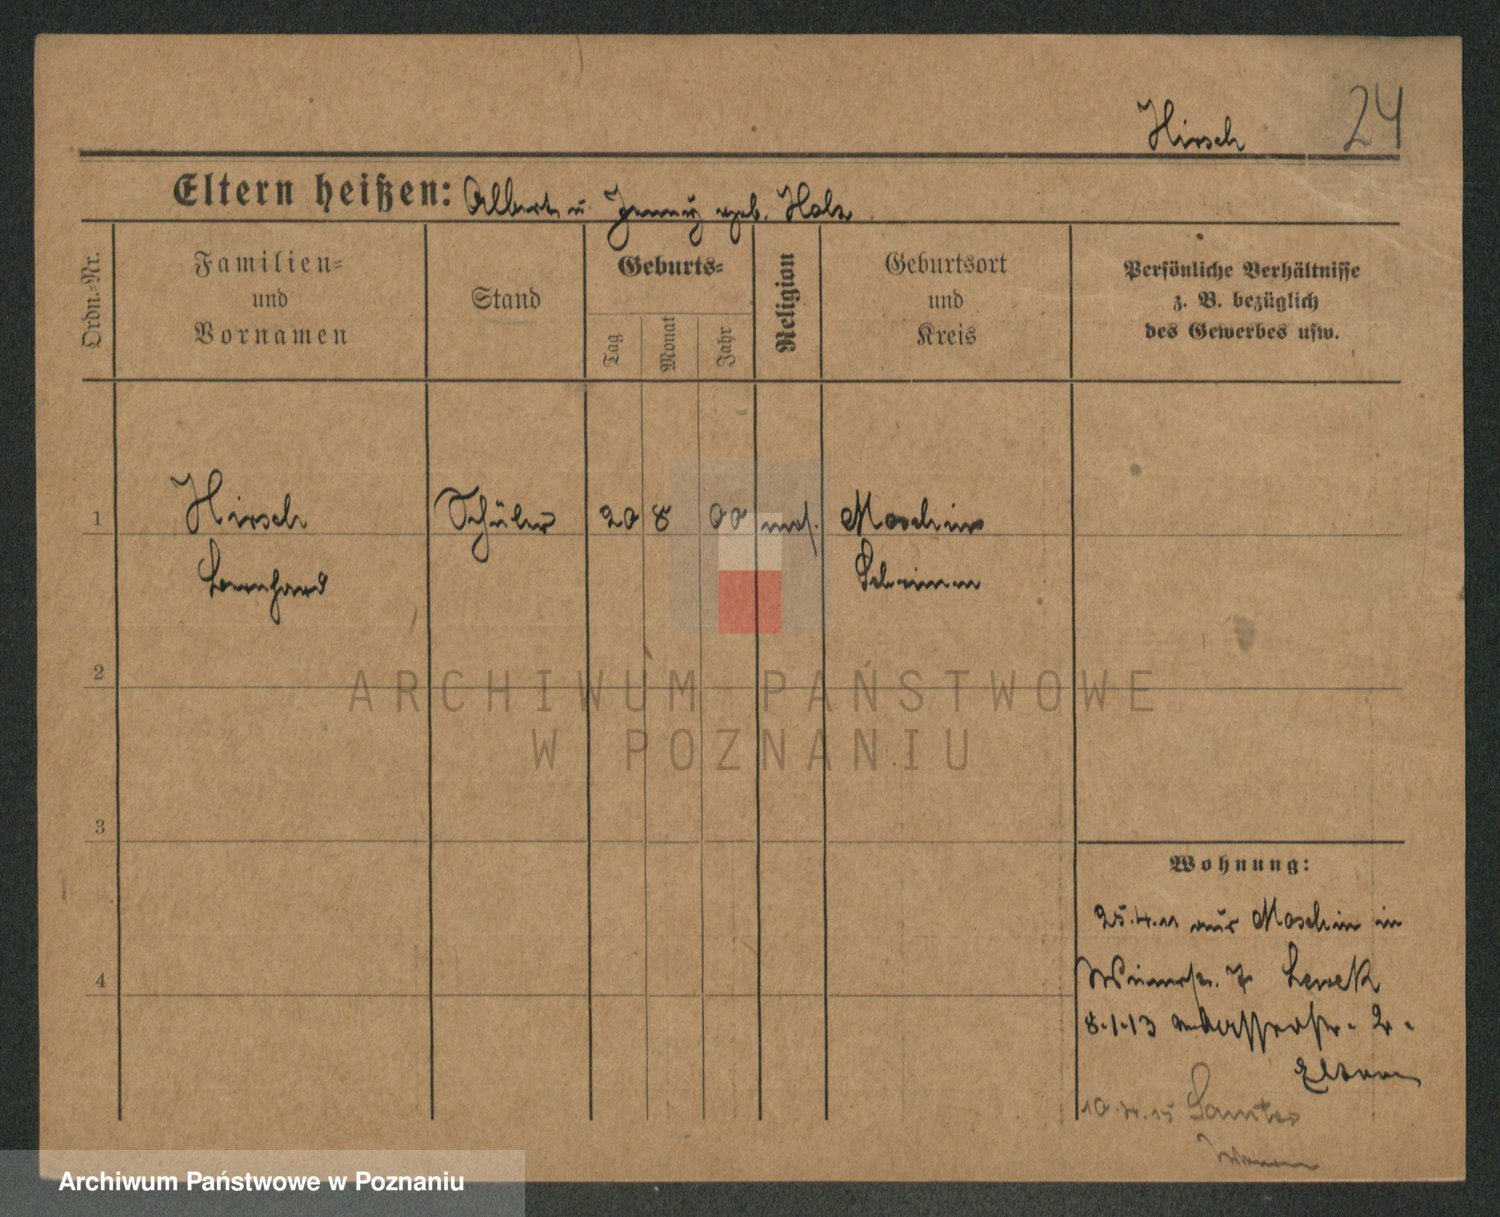 Hirsch 24
Eltern heißen: Albert u. Jenny geb. Holz
Ordn.-Nr.
Familien-
und
Vornamen
Stand
Geburts-
Tag
Monat
Jahr
Religion
Geburtsort
und
Kreis
Persönliche Verhältnisse
z. B. bezüglich
des Gewerbes usw.
1 Hirsch Schüler 20 8 00 mos. Moschin
Bernhard Schrimm
2
ARCHIWUM PAŃSTWOWE
W POZNANIU
3
Wohnung:
25.4.11 aus Moschin in
7 Lewek
4
8.1.13 2.
Eltern
10.4.15 Samter
Archiwum Państwowe w Poznaniu